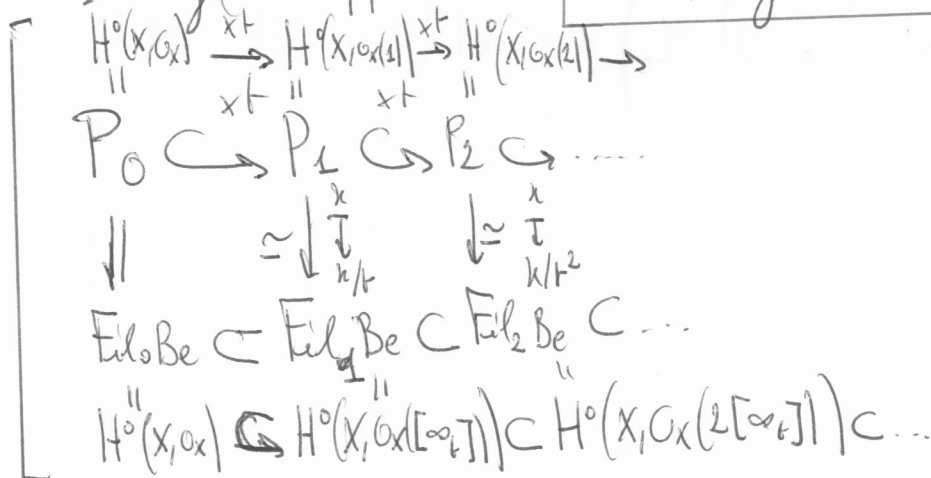 H⁰(X,O_X) →(×t) H⁰(X,O_X(1)) →(×t) H⁰(X,O_X(2)) →
|| ×t || ×t ||
P₀ ↪ P₁ ↪ P₂ ↪ .....
|| ≃ ↓ x ↦ x/t ↓ ≃ x ↦ x/t²
Fil₀Be ⊂ Fil₁Be ⊂ Fil₂Be ⊂ ...
|| || ||
H⁰(X,O_X) ↪ H⁰(X,O_X([∞_t])) ⊂ H⁰(X,O_X(2[∞_t])) ⊂ ...